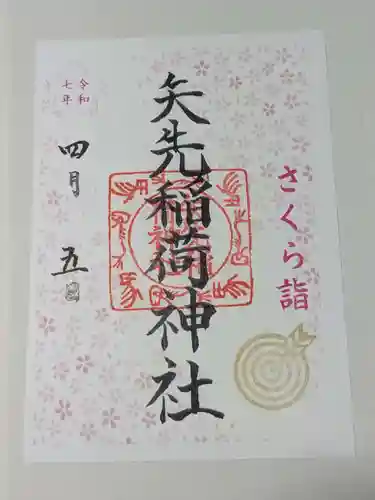 さくら詣
矢先稲荷神社
令和
七年
四月
五日